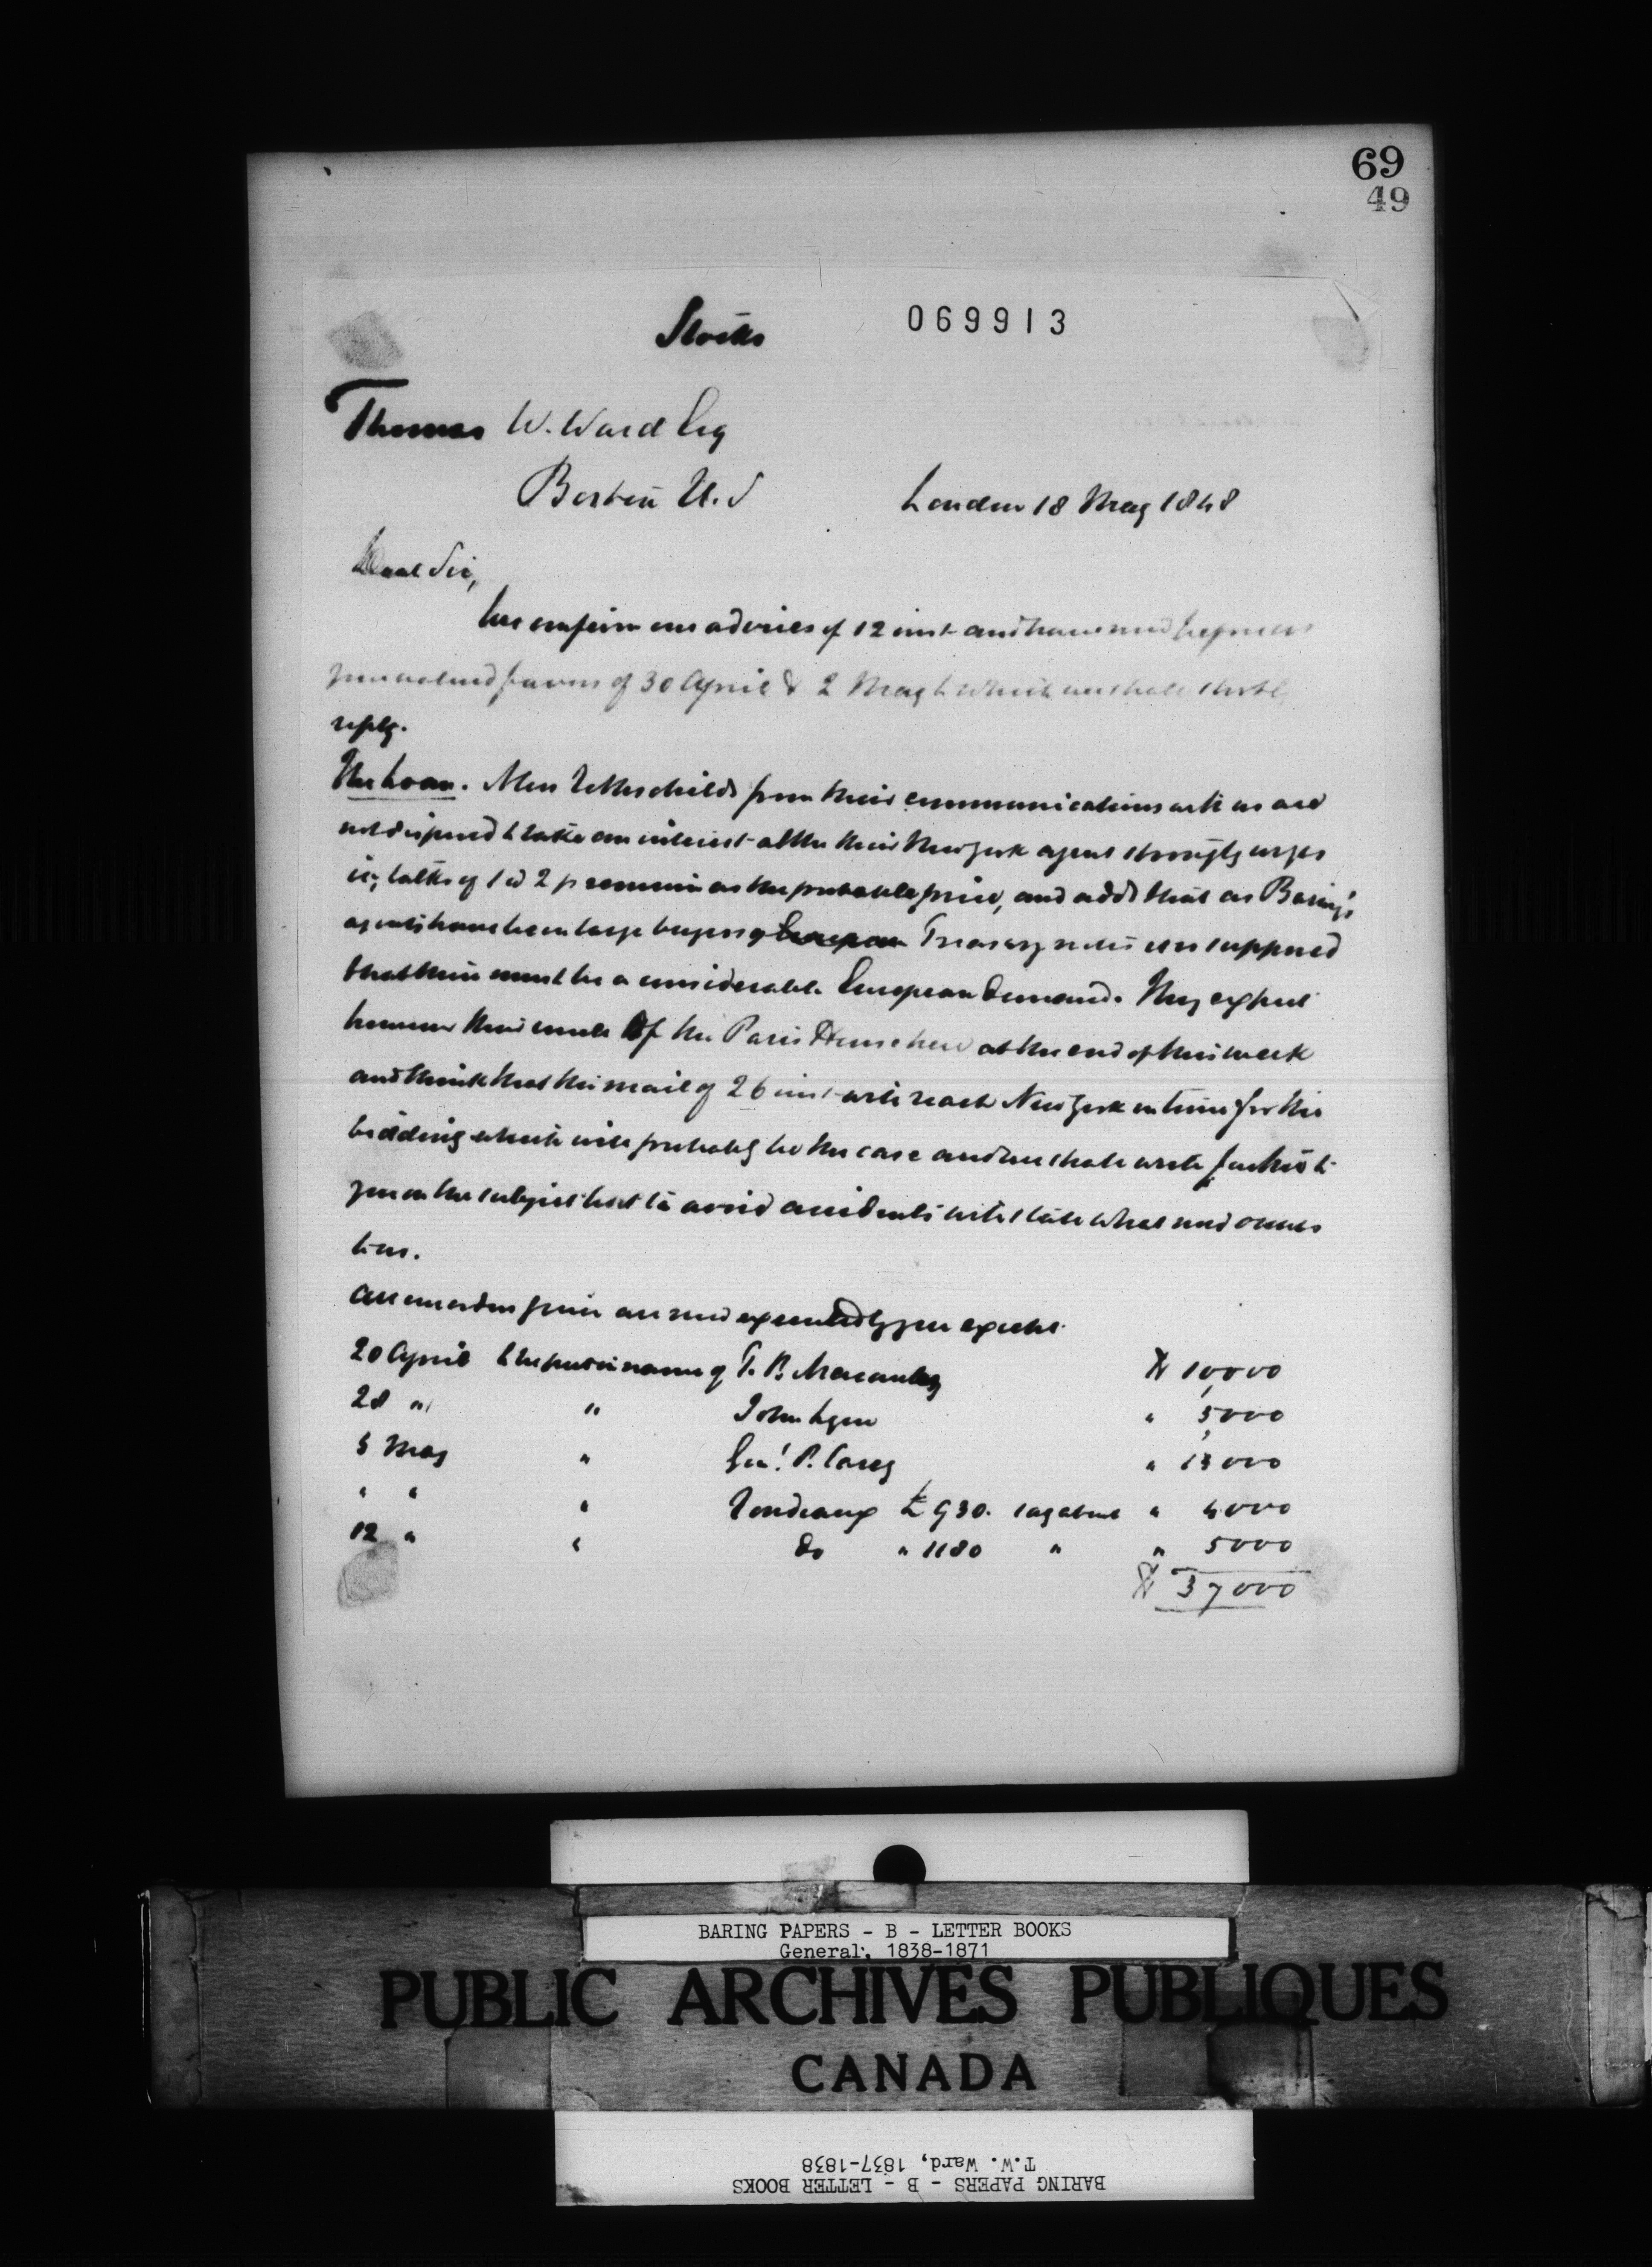 69
49
Stocks
069913
Thomas W. Ward Esq
Boston U.S
London 18 May 1848
Dear Sir,
We confirm our advices of 12 inst and have now before us
your valued favors of 30 April & 2 May to which we shall shortly
reply.
The Loan. Mess Rothschilds from their communications with us are
not disposed to take an interest altho their New York agent strongly urges
it, talks of 1 a 2 p premium as the probable price, and adds that as Baring's
agents have been large buyers of European Treasury notes it is supposed
that there must be a considerable European demand. They expect
however their uncle of the Paris House here at the end of this week
and think that the mail of 26 inst will reach New York in time for the
bidding which will probably be the case and we shall write further to
you on the subject but to avoid accidents will state what now occurs
to us.
All our orders given are now executed by you except
20 April to be put in name of T. B. Macaulay $ 10,000
28 " " John " 5,000
5 May " Genl. P. Carey " 13000
" " " £ 930. say about " 4000
12 " " do " 1180 " " 5000
$ 37000
BARING PAPERS - B - LETTER BOOKS
General, 1838-1871
PUBLIC ARCHIVES PUBLIQUES
CANADA
BARING PAPERS - B - LETTER BOOKS
T.W. Ward, 1837-1838